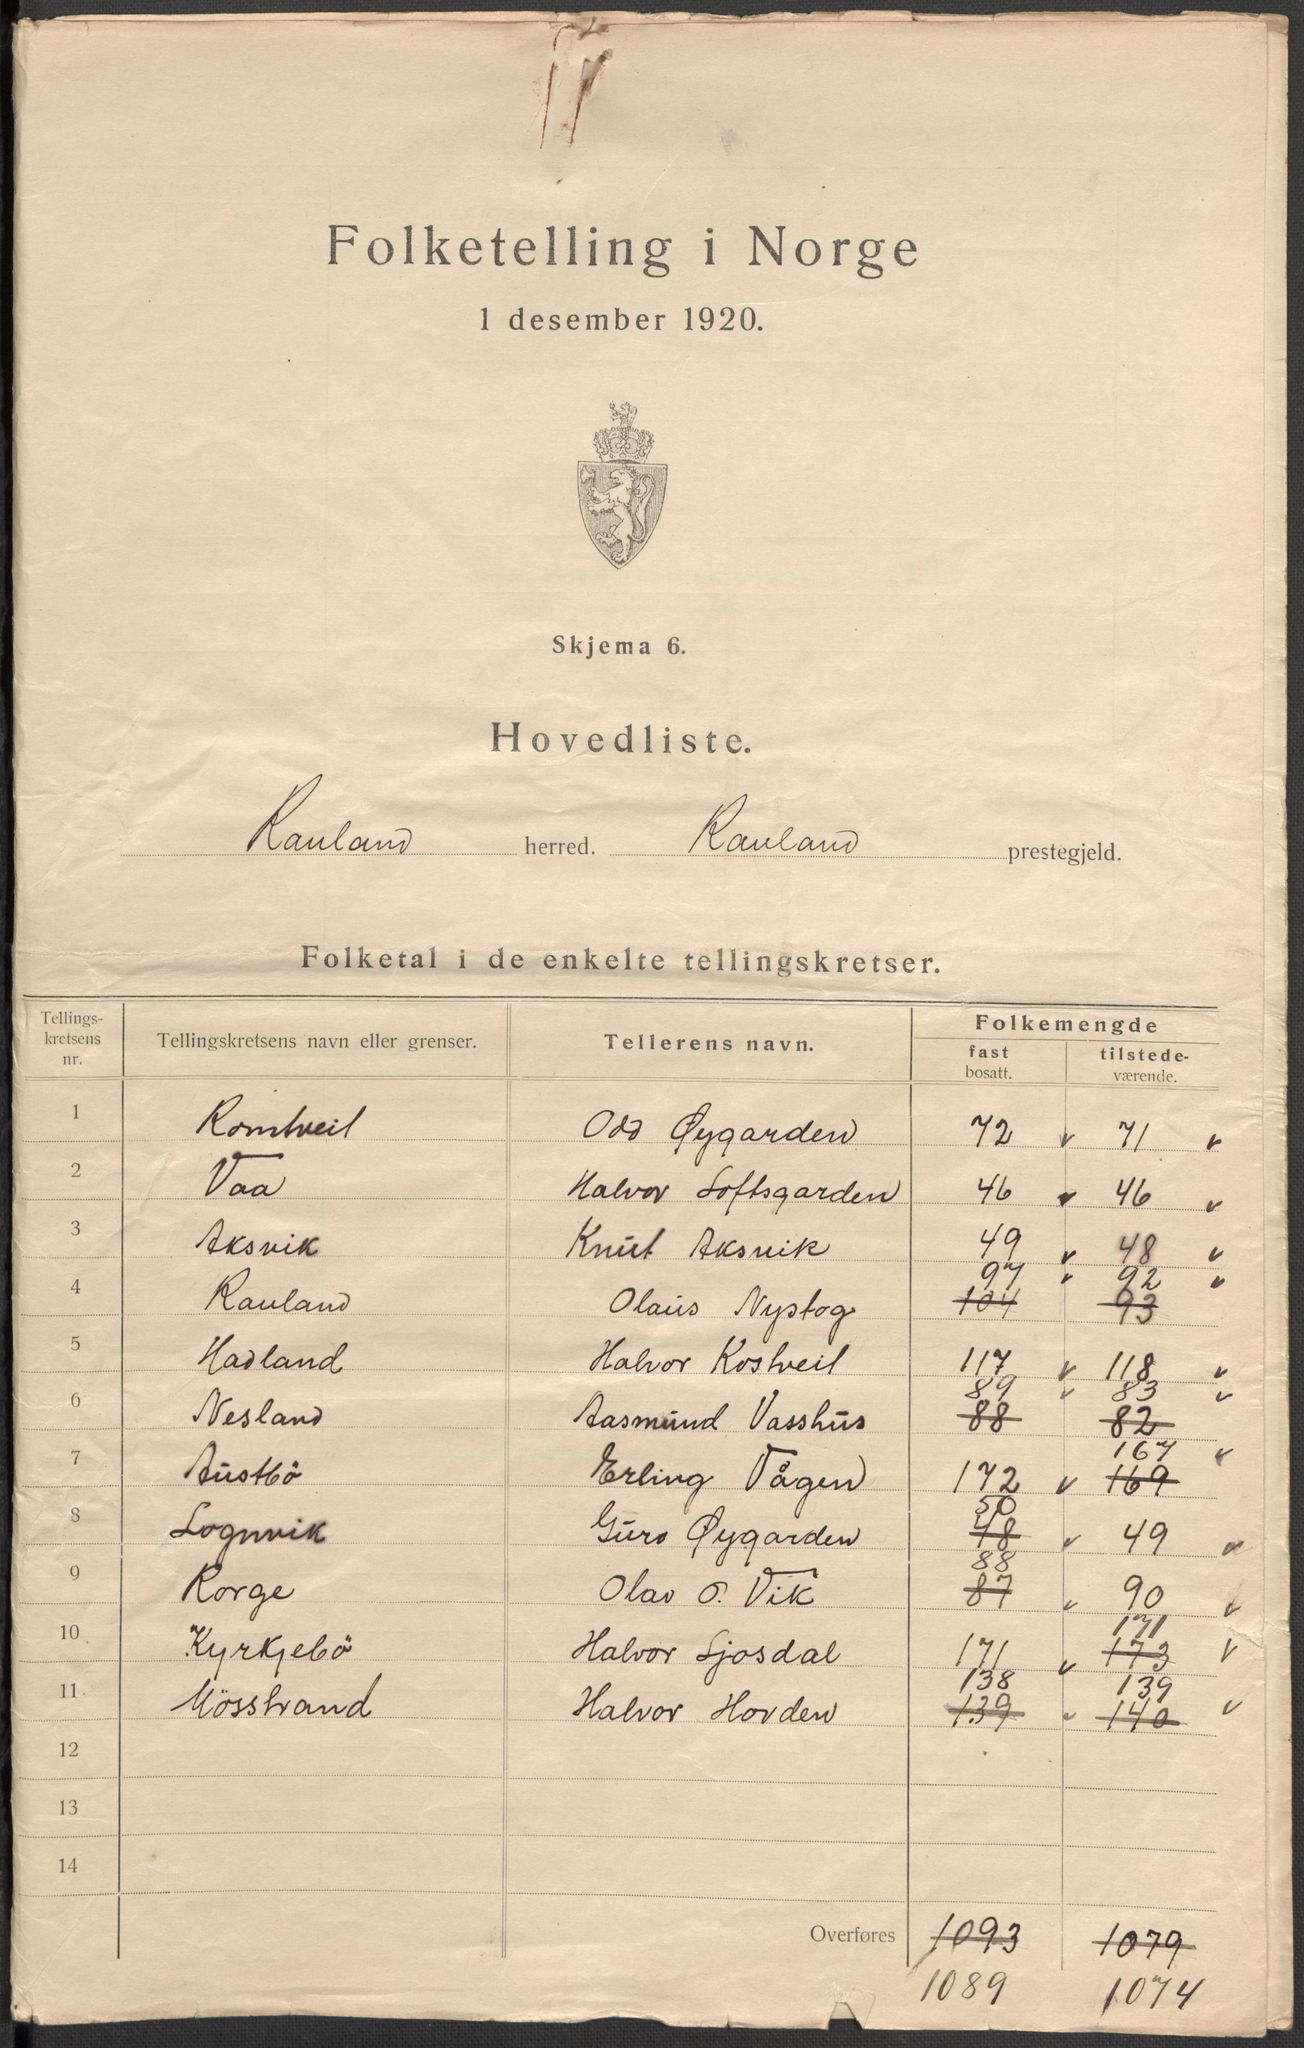 Folketelling i Norge
1 desember 1920.
Skjema 6.
Hovedliste.
Rauland herred. Rauland prestegjeld.
Folketal i de enkelte tellingskretser.
Tellings-kretsens nr. Tellingskretsens navn eller grenser. Tellerens navn. Folkemengde
fast bosatt. tilstede-værende.
1 Romtveit Odd Øygarden 72 v 71 v
2 Vaa Halvor Loftsgarden 46 v 46 v
3 Aksvik Knut Aksvik 49 v 48 v
97 v 92 v
4 Rauland Olaus Nystog 104 93
5 Hadland Halvor Kostveit 117 v 118 v
89 v 83 v
6 Nesland Aasmund Vasshus 88 82
167 v
7 Austbö Erling Vågen 172 v 169
50
8 Lognvik Guro Øygarden 48 v 49 v
88
9 Korge Olav O. Vik 87 v 90 v
171
10 Kyrkjebö Halvor Ljosdal 171 v 173 v
138 139
11 Mösstrand Halvor Hovden 139 v 140 v
12
13
14
Overføres 1093 1079
1089 1074